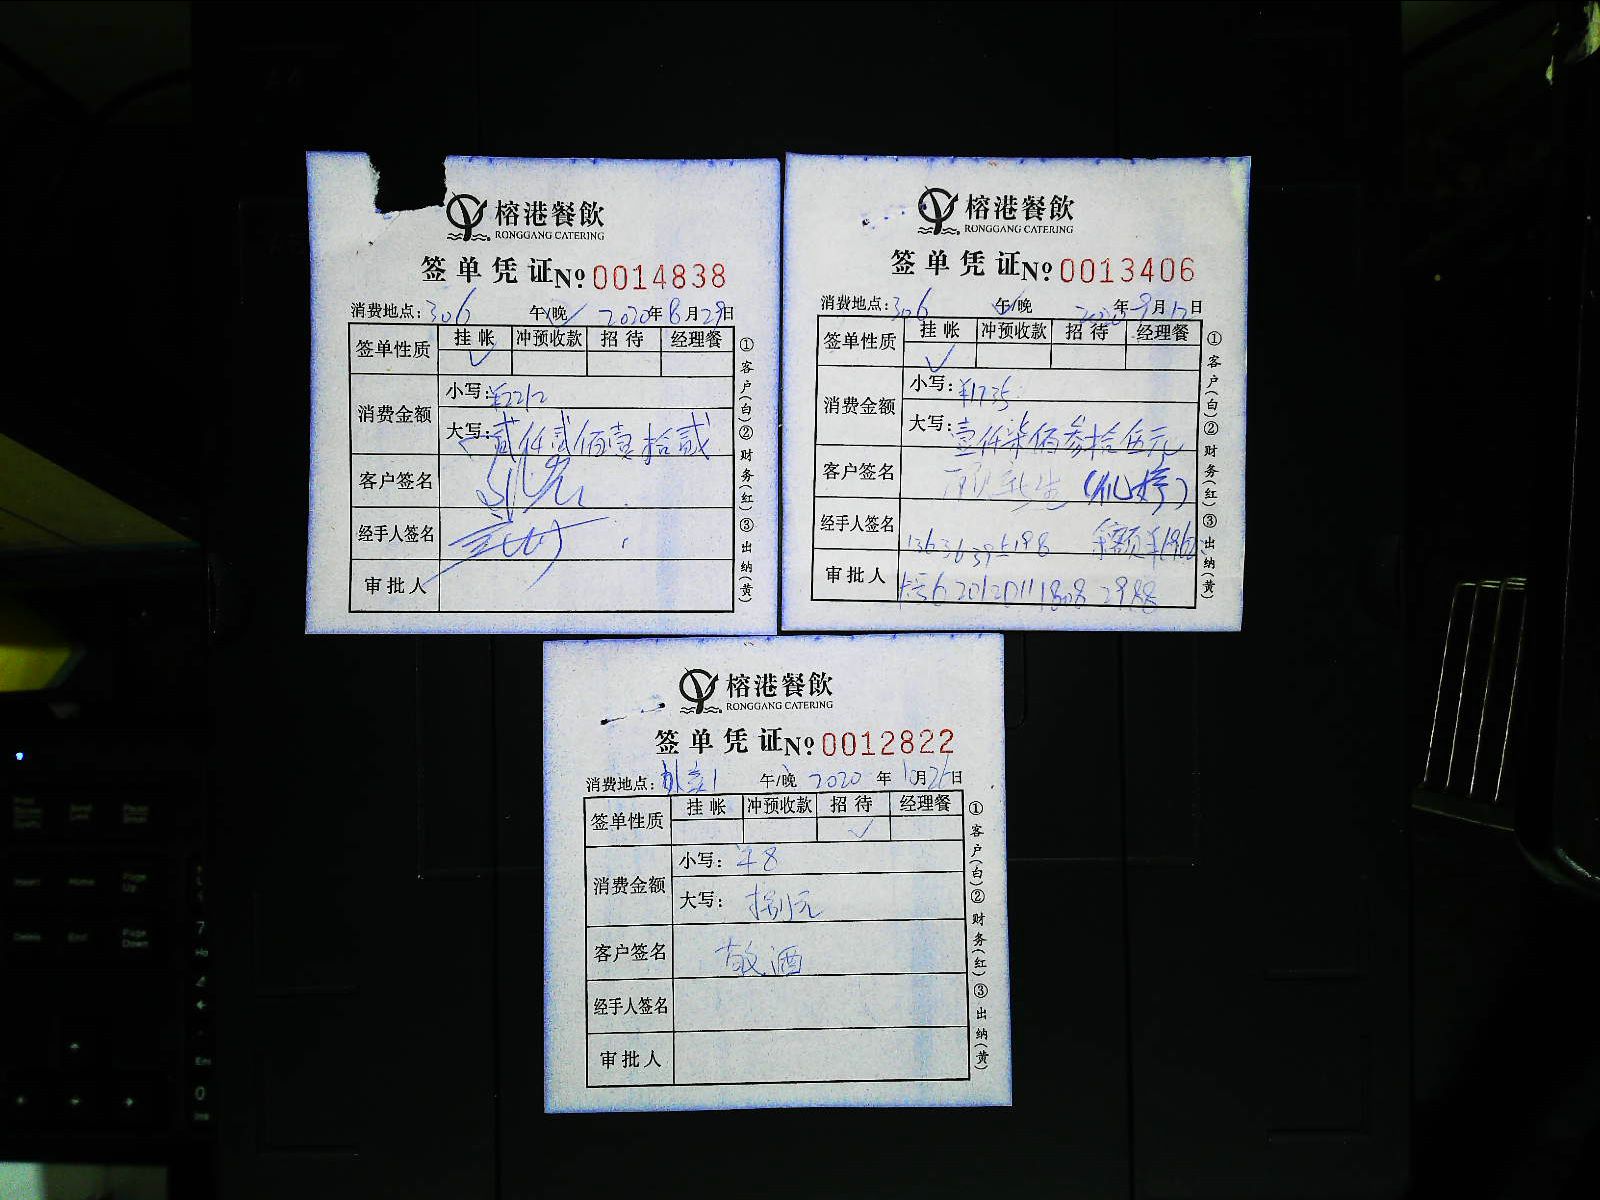 榕港餐飲
RONGGANG CATERING
签单凭证№0014838
消费地点:306 午/晚 2020年8月29日
签单性质 挂帐 冲预收款 招待 经理餐
消费金额 小写:¥2212
大写:贰仟贰佰壹拾贰
客户签名
经手人签名
审批人
①客户(白)②财务(红)③出纳(黄)
榕港餐飲
RONGGANG CATERING
签单凭证№0013406
消费地点:306 午/晚 2020年9月12日
签单性质 挂帐 冲预收款 招待 经理餐
消费金额 小写:¥1735
大写:壹仟柒佰叁拾伍元
客户签名
经手人签名 余额¥196
审批人 卡号6201201118082988
①客户(白)②财务(红)③出纳(黄)
榕港餐飲
RONGGANG CATERING
签单凭证№0012822
消费地点: 午/晚 2020年10月21日
签单性质 挂帐 冲预收款 招待 经理餐
消费金额 小写:¥8
大写:捌元
客户签名 敬酒
经手人签名
审批人
①客户(白)②财务(红)③出纳(黄)